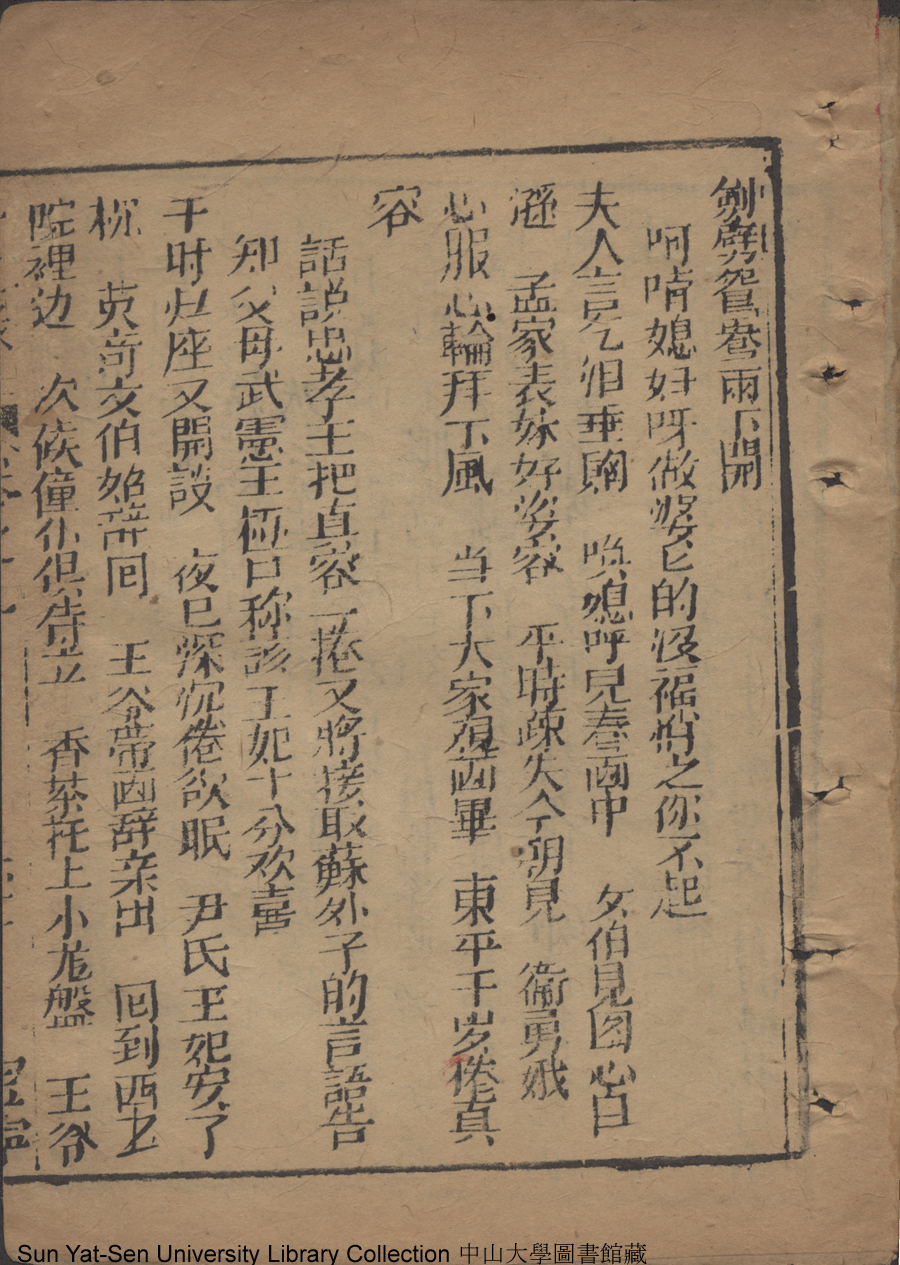 劍劈鴛鴦兩下開
呵唷媳妇呀做婆它的没福悄之你不起
夫人言乞泪垂胸 唤媳呼見春画中 文伯見图心自
遜 孟家表妹好姿容 平時疎失今朝見 衛勇娥
心服心輪拜下風 当下大家覌画畢 東平千岁倦真
容
話説忠孝王把真容一捲又將接取蘇外子的言語告
知父母武憲王極口称該丁妃十分欢喜
于时灶座又開談 夜已深沉倦欲眠 尹氏王妃安了
枕 英竒文伯始辞囘 王爷帶画辞亲出 囘到西土
院裡边 次候僮仆俱侍立 香茶托上小龙盤 王爷
Sun Yat-Sen University Library Collection 中山大學圖書館藏